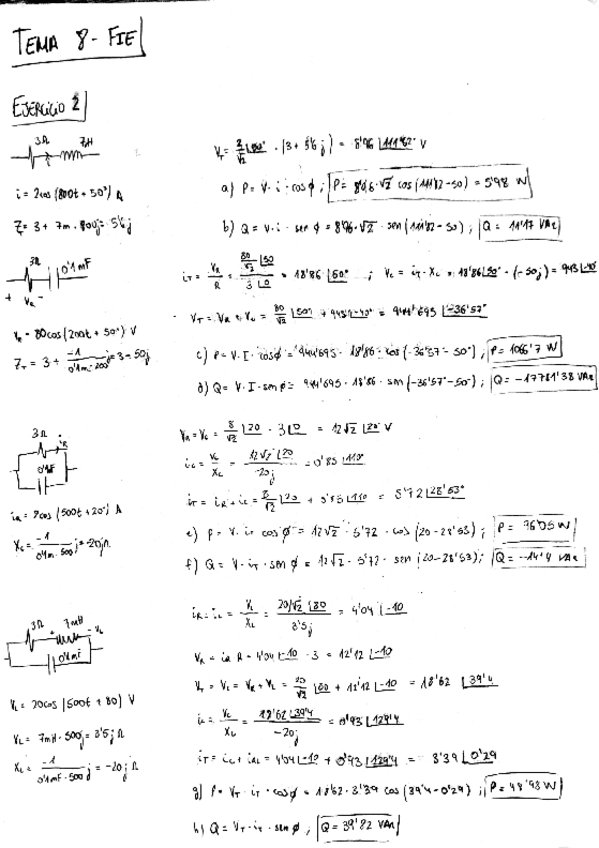 TEMA 8 - FIE
EJERCICIO 2
3Ω 7mH
i = 2cos(800t + 50°) A
Z_T = 3 + 7m · 800j = 5'6j
V_T = 2/√2 |50° · (3 + 5'6j) = 8'96 |111'82° V
a) P = V · i · cos ϕ ; P = 8'96 · √2 cos(111'82 - 50) = 5'98 W
b) Q = V · i · sen ϕ = 8'96 · √2 · sen(111'82 - 50) ; Q = 11'17 VAr
3Ω 0'1mF
+ V_R -
V_R = 80cos(200t + 50°) V
Z_T = 3 + -1/(0'1m · 200) j = 3 - 50j
i_T = V_R/R = (80/√2 |50)/(3 |0) = 18'86 |50° ; V_C = i_T · X_C = 18'86 |50 · (-50j) = 943 |-40°
V_T = V_R + V_C = 80/√2 |50 + 943 |-40° = 944'695 |-36'57°
c) P = V · I · cos ϕ = 944'695 · 18'86 · cos(-36'57 - 50°) ; P = 1066'7 W
d) Q = V · I · sen ϕ = 944'695 · 18'86 · sen(-36'57° - 50°) ; Q = -17781'38 VAr
3Ω i_R
i_R = 8cos(500t + 20°) A
X_C = -1/(0'1m · 500) j = -20jΩ
V_R = V_C = 8/√2 |20 · 3 |0 = 12√2 |20° V
i_C = V_C/X_C = 12√2 |20/-20j = 0'85 |110°
i_T = i_R + i_C = 8/√2 |20 + 0'85 |110 = 5'72 |28'53°
e) P = V · i_T cos ϕ = 12√2 · 5'72 · cos(20 - 28'53) ; P = 96'05 W
f) Q = V · i_T · sen ϕ = 12√2 · 5'72 · sen(20 - 28'53) ; Q = -14'4 VAr
3Ω 7mH
+ - V_L
0'1mF
V_L = 20cos(500t + 80) V
X_L = 7mH · 500j = 3'5j Ω
X_C = -1/(0'1mF · 500) j = -20j Ω
i_R = i_L = V_L/X_L = 20/√2 |80/3'5j = 4'04 |-10
V_R = i_R R = 4'04 |-10 · 3 = 12'12 |-10
V_T = V_C = V_R + V_L = 20/√2 |80 + 12'12 |-10 = 18'62 |39'4
i_C = V_C/X_C = 18'62 |39'4/-20j = 0'93 |129'4
i_T = i_C + i_RL = 4'04 |-10 + 0'93 |129'4 = 3'39 |0'29
g) P = V_T · i_T · cos ϕ = 18'62 · 3'39 cos(39'4 - 0'29) ; P = 48'98 W
h) Q = V_T · i_T · sen ϕ ; Q = 39'82 VAr